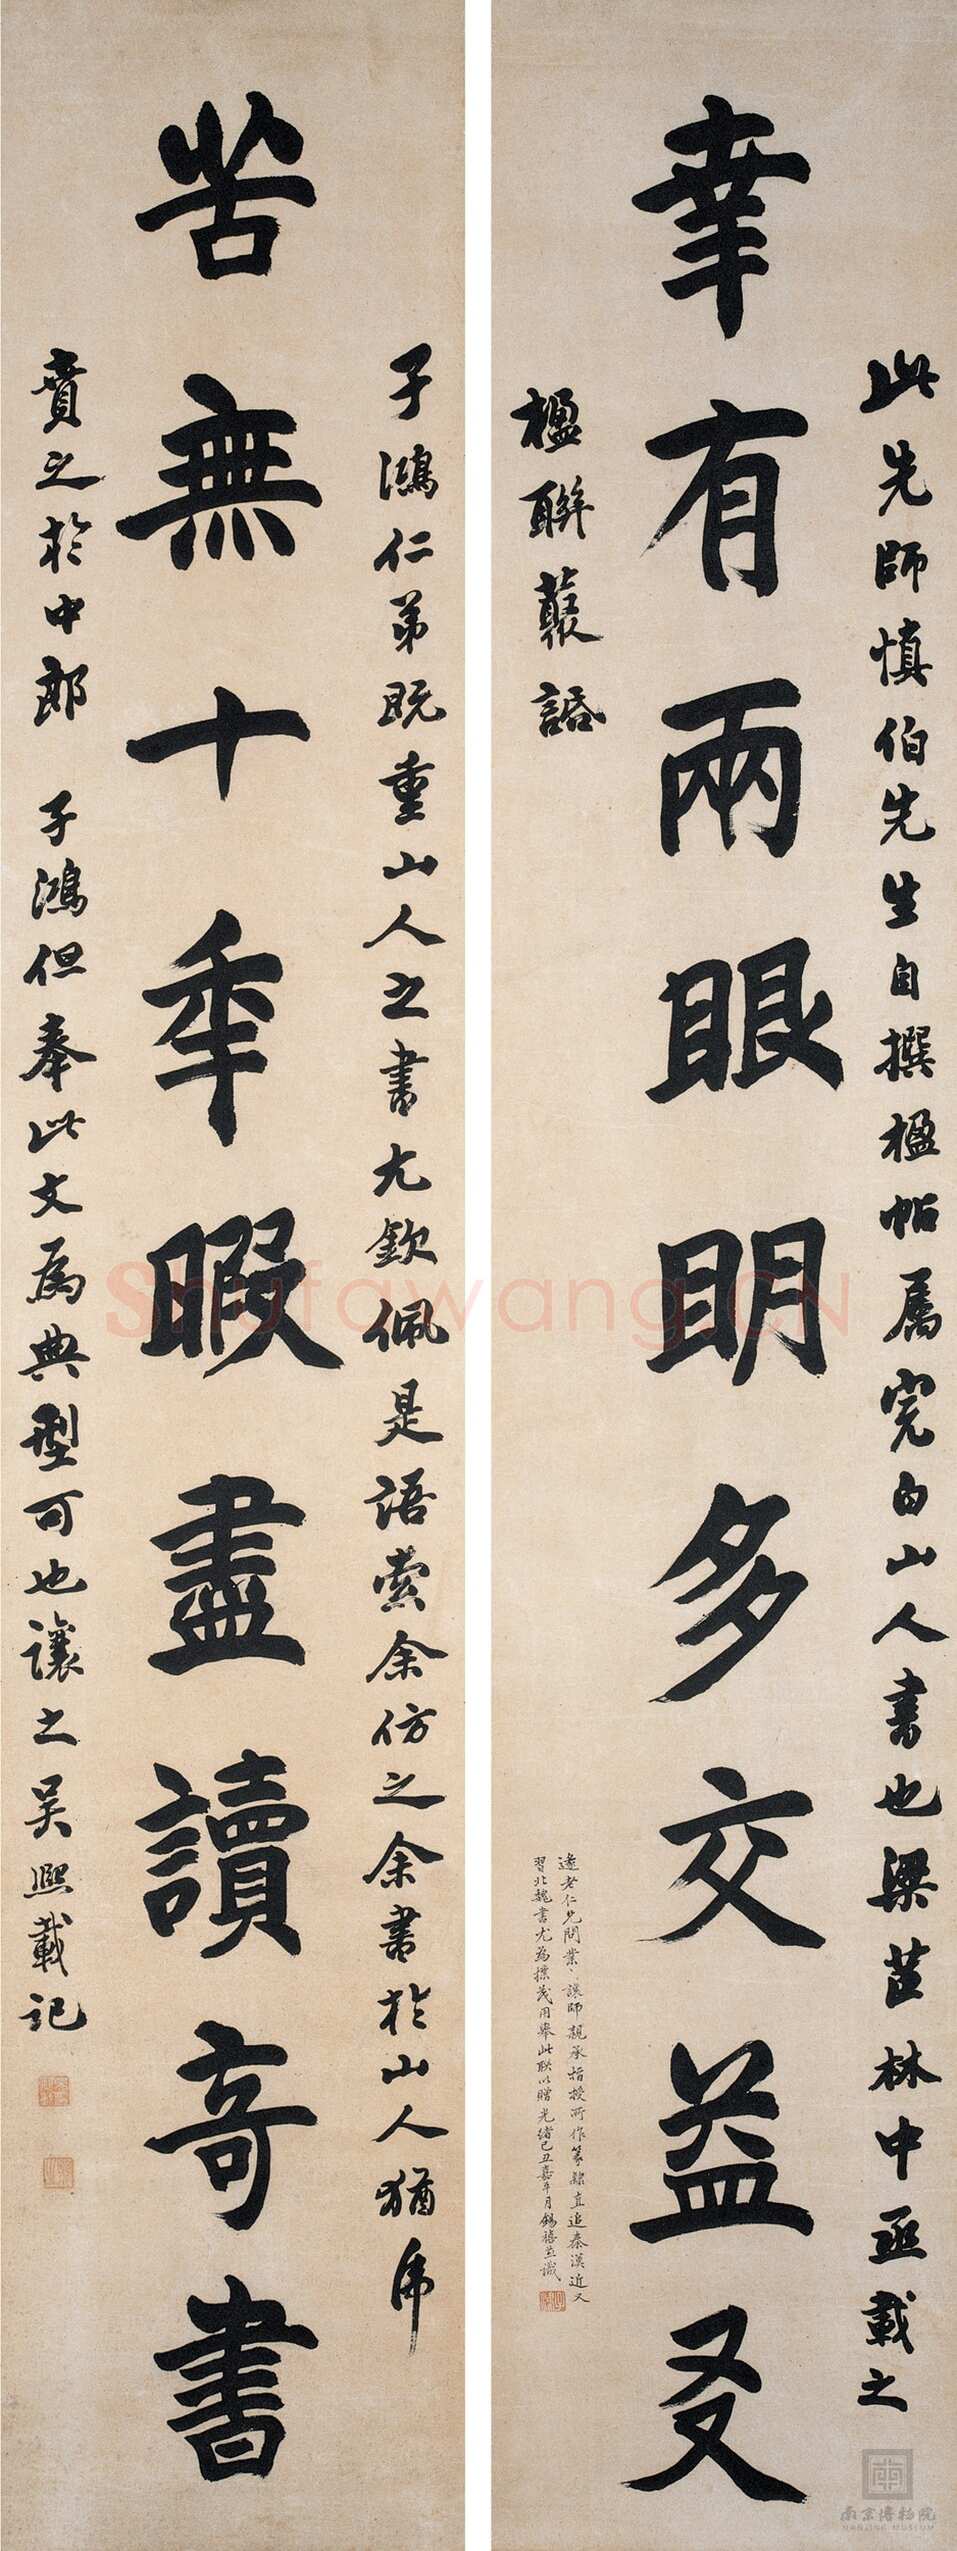 此先師慎伯先生自撰楹帖屬完白山人書也梁茝林中丞載之
幸有兩眼明多交益友
楹聯叢話
邃老仁兄問業讓師親承指授所作篆隸直追秦漢近又
習北魏書尤為樸茂用舉此聯以贈光緒己丑嘉平月錫蕃並識
子鴻仁弟既重山人之書尤欽佩是語索余仿之余書於山人猶虎
苦無十年暇盡讀奇書
賁之於中郎 子鴻但奉此文為典型可也讓之吳熙載記
Shufawang.CN
南京博物院
NANJING MUSEUM